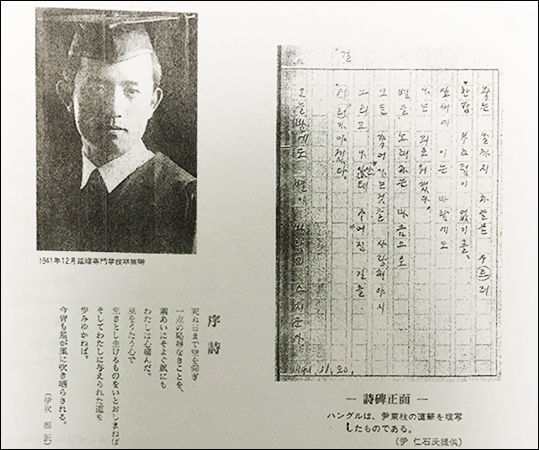 1941年12月延禧専門学校卒業時
죽는 날까지 하늘을 우르러
한점 부끄럼이 없기를,
잎새에 이는 바람에도
나는 괴로워했다.
별을 노래하는 마음으로
모든 죽어가는것을 사랑해야지
그리고 나안테 주어진 길을
거러가야겠다.
오늘밤에도 별이 바람에 스치운다.
1941.11.20.
序詩
死ぬ日まで空を仰ぎ
一点の恥辱なきことを、
葉あいにそよぐ風にも
わたしは心痛んだ。
星をうたう心で
生きとし生けるものをいとおしまねば
そしてわたしに与えられた道を
歩みゆかねば。
今宵も星が風に吹き晒らされる。
(伊吹 郷 訳)
— 詩碑正面 —
ハングルは、尹東柱の直筆を複写
したものである。
(尹 仁石氏提供)